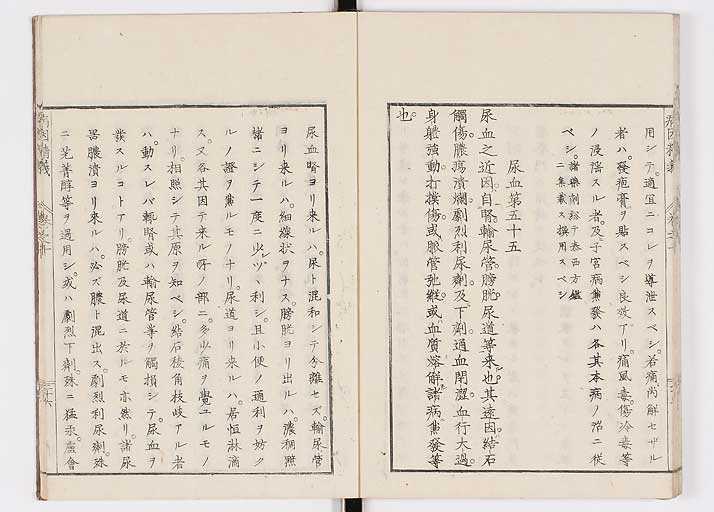 用シテ。適宜ニコレヲ導泄スベシ。若痛尚解セザル
者ハ。發疱膏ヲ貼スベシ良效アリ。痛風毒。傷冷毒等
ノ浸淫スル者。及子宮病兼發ハ各其本病ノ治ニ従
ベシ。諸藥劑裕テ泰西方鑑
ニ集載ス撰用スベシ
尿血第五十五
尿血之近因。自腎。輸尿管。膀胱。尿道等来也。其遠因。結石
觸傷。膿瘍潰爛。劇烈利尿劑。及下劑。通血閉濇。血行太過。
身體強動。打撲傷。或脈管弛縱。或血質熔解。諸病兼發等
也。
尿血腎ヨリ来ルハ。尿ト混和シテ分離セズ。輸尿管
ヨリ来ルハ。細線状ヲナス。膀胱ヨリ出ルハ。濃稠黑
諸ニシテ一度ニ少シヅヽ利シ。且小便ノ通利ヲ妨ク
ルノ證ヲ兼ルモノナリ。尿道ヨリ来ルハ。居恒淋滴
ス。又各其因テ来ル所ノ部ニ。多少痛ヲ覺ユルモノ
ナリ。相照シテ其原ヲ知ベシ。結石稜角枝岐アル者
ハ。動スレバ輙腎或ハ輸尿管等ヲ觸損シテ。尿血ヲ
發スルコトアリ。膀胱及尿道ニ於ルモ亦然リ。諸尿
器膿潰ヨリ来ルハ。必ズ膿ト混出ス。劇烈利尿劑。殊
ニ芫菁醇等ヲ過用シ。或ハ劇烈下劑。殊ニ猛汞。蘆會
病因精義